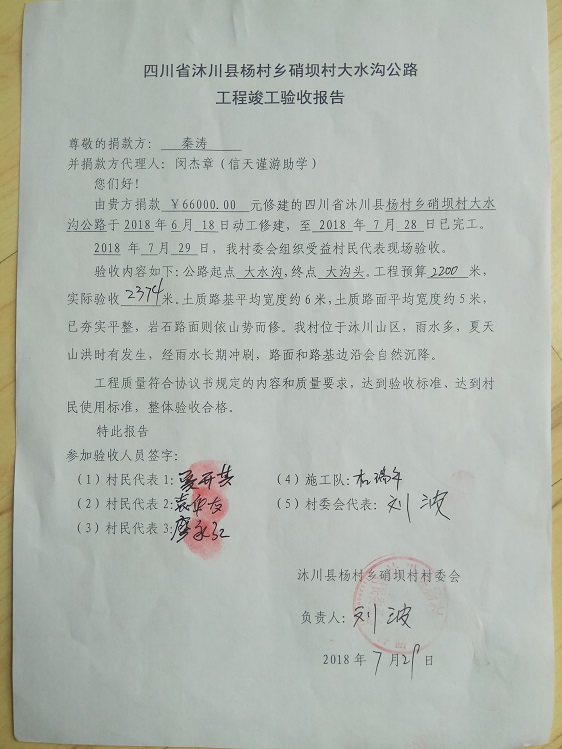 四川省沐川县杨村乡硝坝村大水沟公路
工程竣工验收报告
尊敬的捐款方： 秦涛
并捐款方代理人：闵杰章（信天谨游助学）
您们好！
由贵方捐款 ￥66000.00 元修建的四川省沐川县杨村乡硝坝村大水
沟公路于 2018 年 6 月 18 日动工修建，至 2018 年 7 月 28 日已完工。
2018 年 7 月 29 日，我村委会组织受益村民代表现场验收。
验收内容如下：公路起点 大水沟，终点 大沟头。工程预算 2200 米，
实际验收 2374 米。土质路基平均宽度约 6 米，土质路面平均宽度约 5 米，
已夯实平整，岩石路面则依山势而修。我村位于沐川山区，雨水多，夏天
山洪时有发生，经雨水长期冲刷，路面和路基边沿会自然沉降。
工程质量符合协议书规定的内容和质量要求，达到验收标准、达到村
民使用标准，整体验收合格。
特此报告
参加验收人员签字：
（1）村民代表 1:
（4）施工队:
（2）村民代表 2:
（5）村委会代表: 刘波
（3）村民代表 3:
沐川县杨村乡硝坝村村委会
负责人: 刘波
2018 年 7 月 29 日